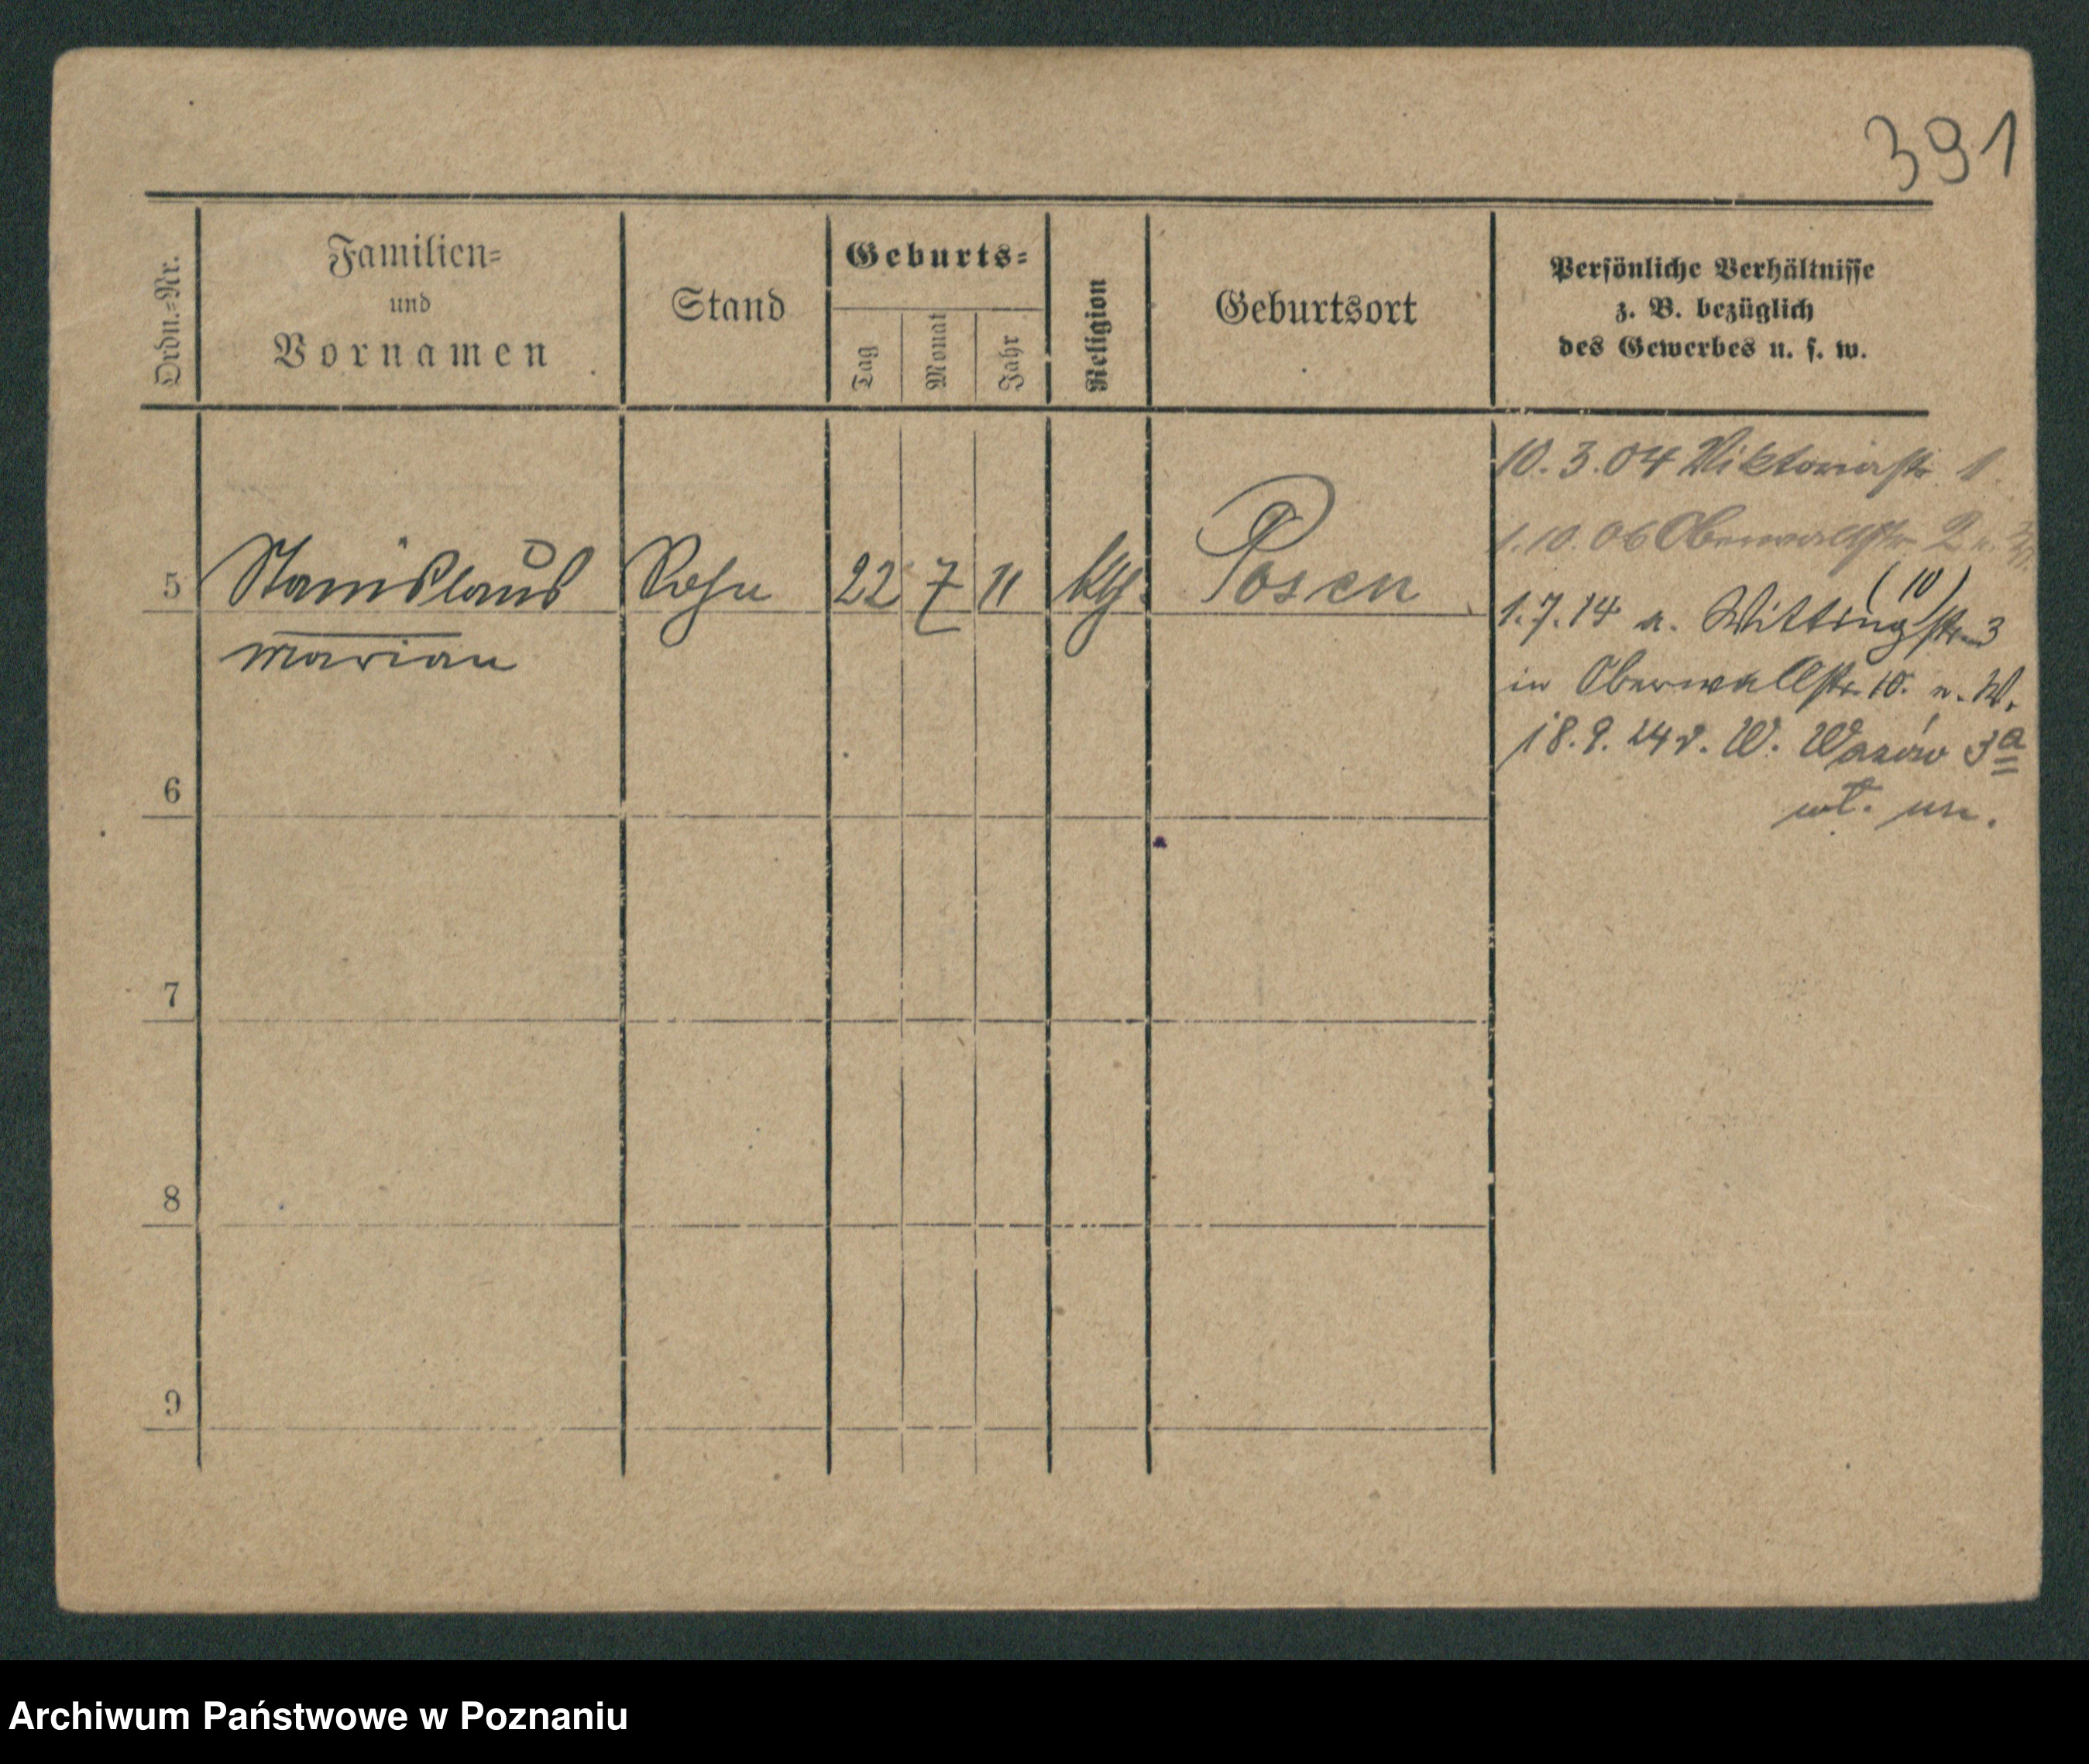 391
Ordn.=Nr.
Familien=
und
Vornamen
Stand
Geburts=
Tag
Monat
Jahr
Religion
Geburtsort
Persönliche Verhältnisse
z. B. bezüglich
des Gewerbes u. s. w.
5 Stanislaus Sohn 22 7 11 kth. Posen
Marian
6
7
8
9
10. 3. 04 Viktoriastr. 1
1. 10. 06 Oberwallstr. 2
(10)
1. 7. 14 a. Wittingstr. 3
in Oberwallstr. 10. u. W.
18. 9. 24 v. W. Wazów 3a
Archiwum Państwowe w Poznaniu